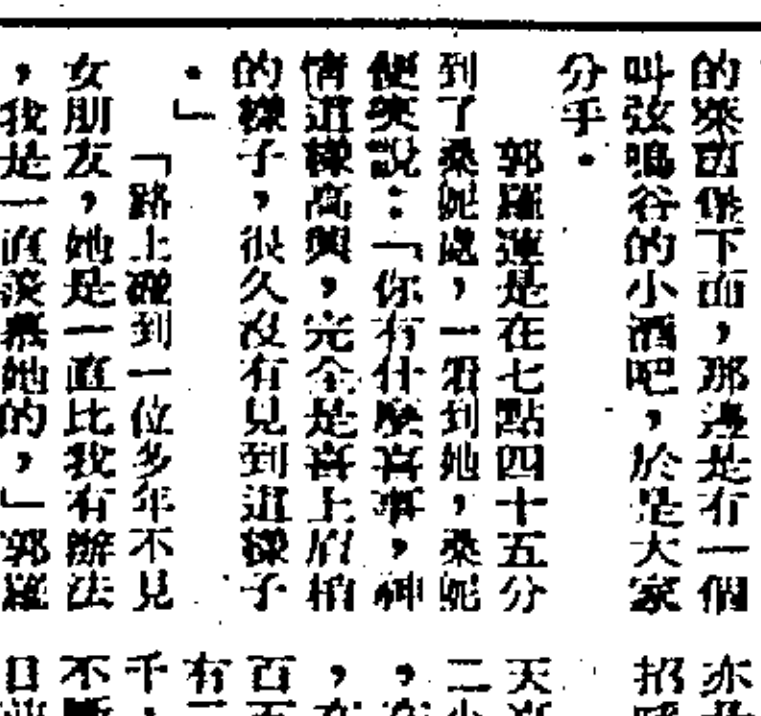 的樂茵堡下面，那邊是有一個
叫弦鳴谷的小酒吧，於是大家
分手。
郭羅蓮是在七點四十五分
到了桑妮處，一看到她，桑妮
便笑說：「你有什麼喜事，神
情這樣高興，完全是喜上眉梢
的樣子，很久沒有見到這樣子
。」
「路上碰到一位多年不見
女朋友，她是一直比我有辦法
，我是一直羨慕她的，」郭羅
亦
招
天
二小
，
，
百五
有
千，
不斷
日